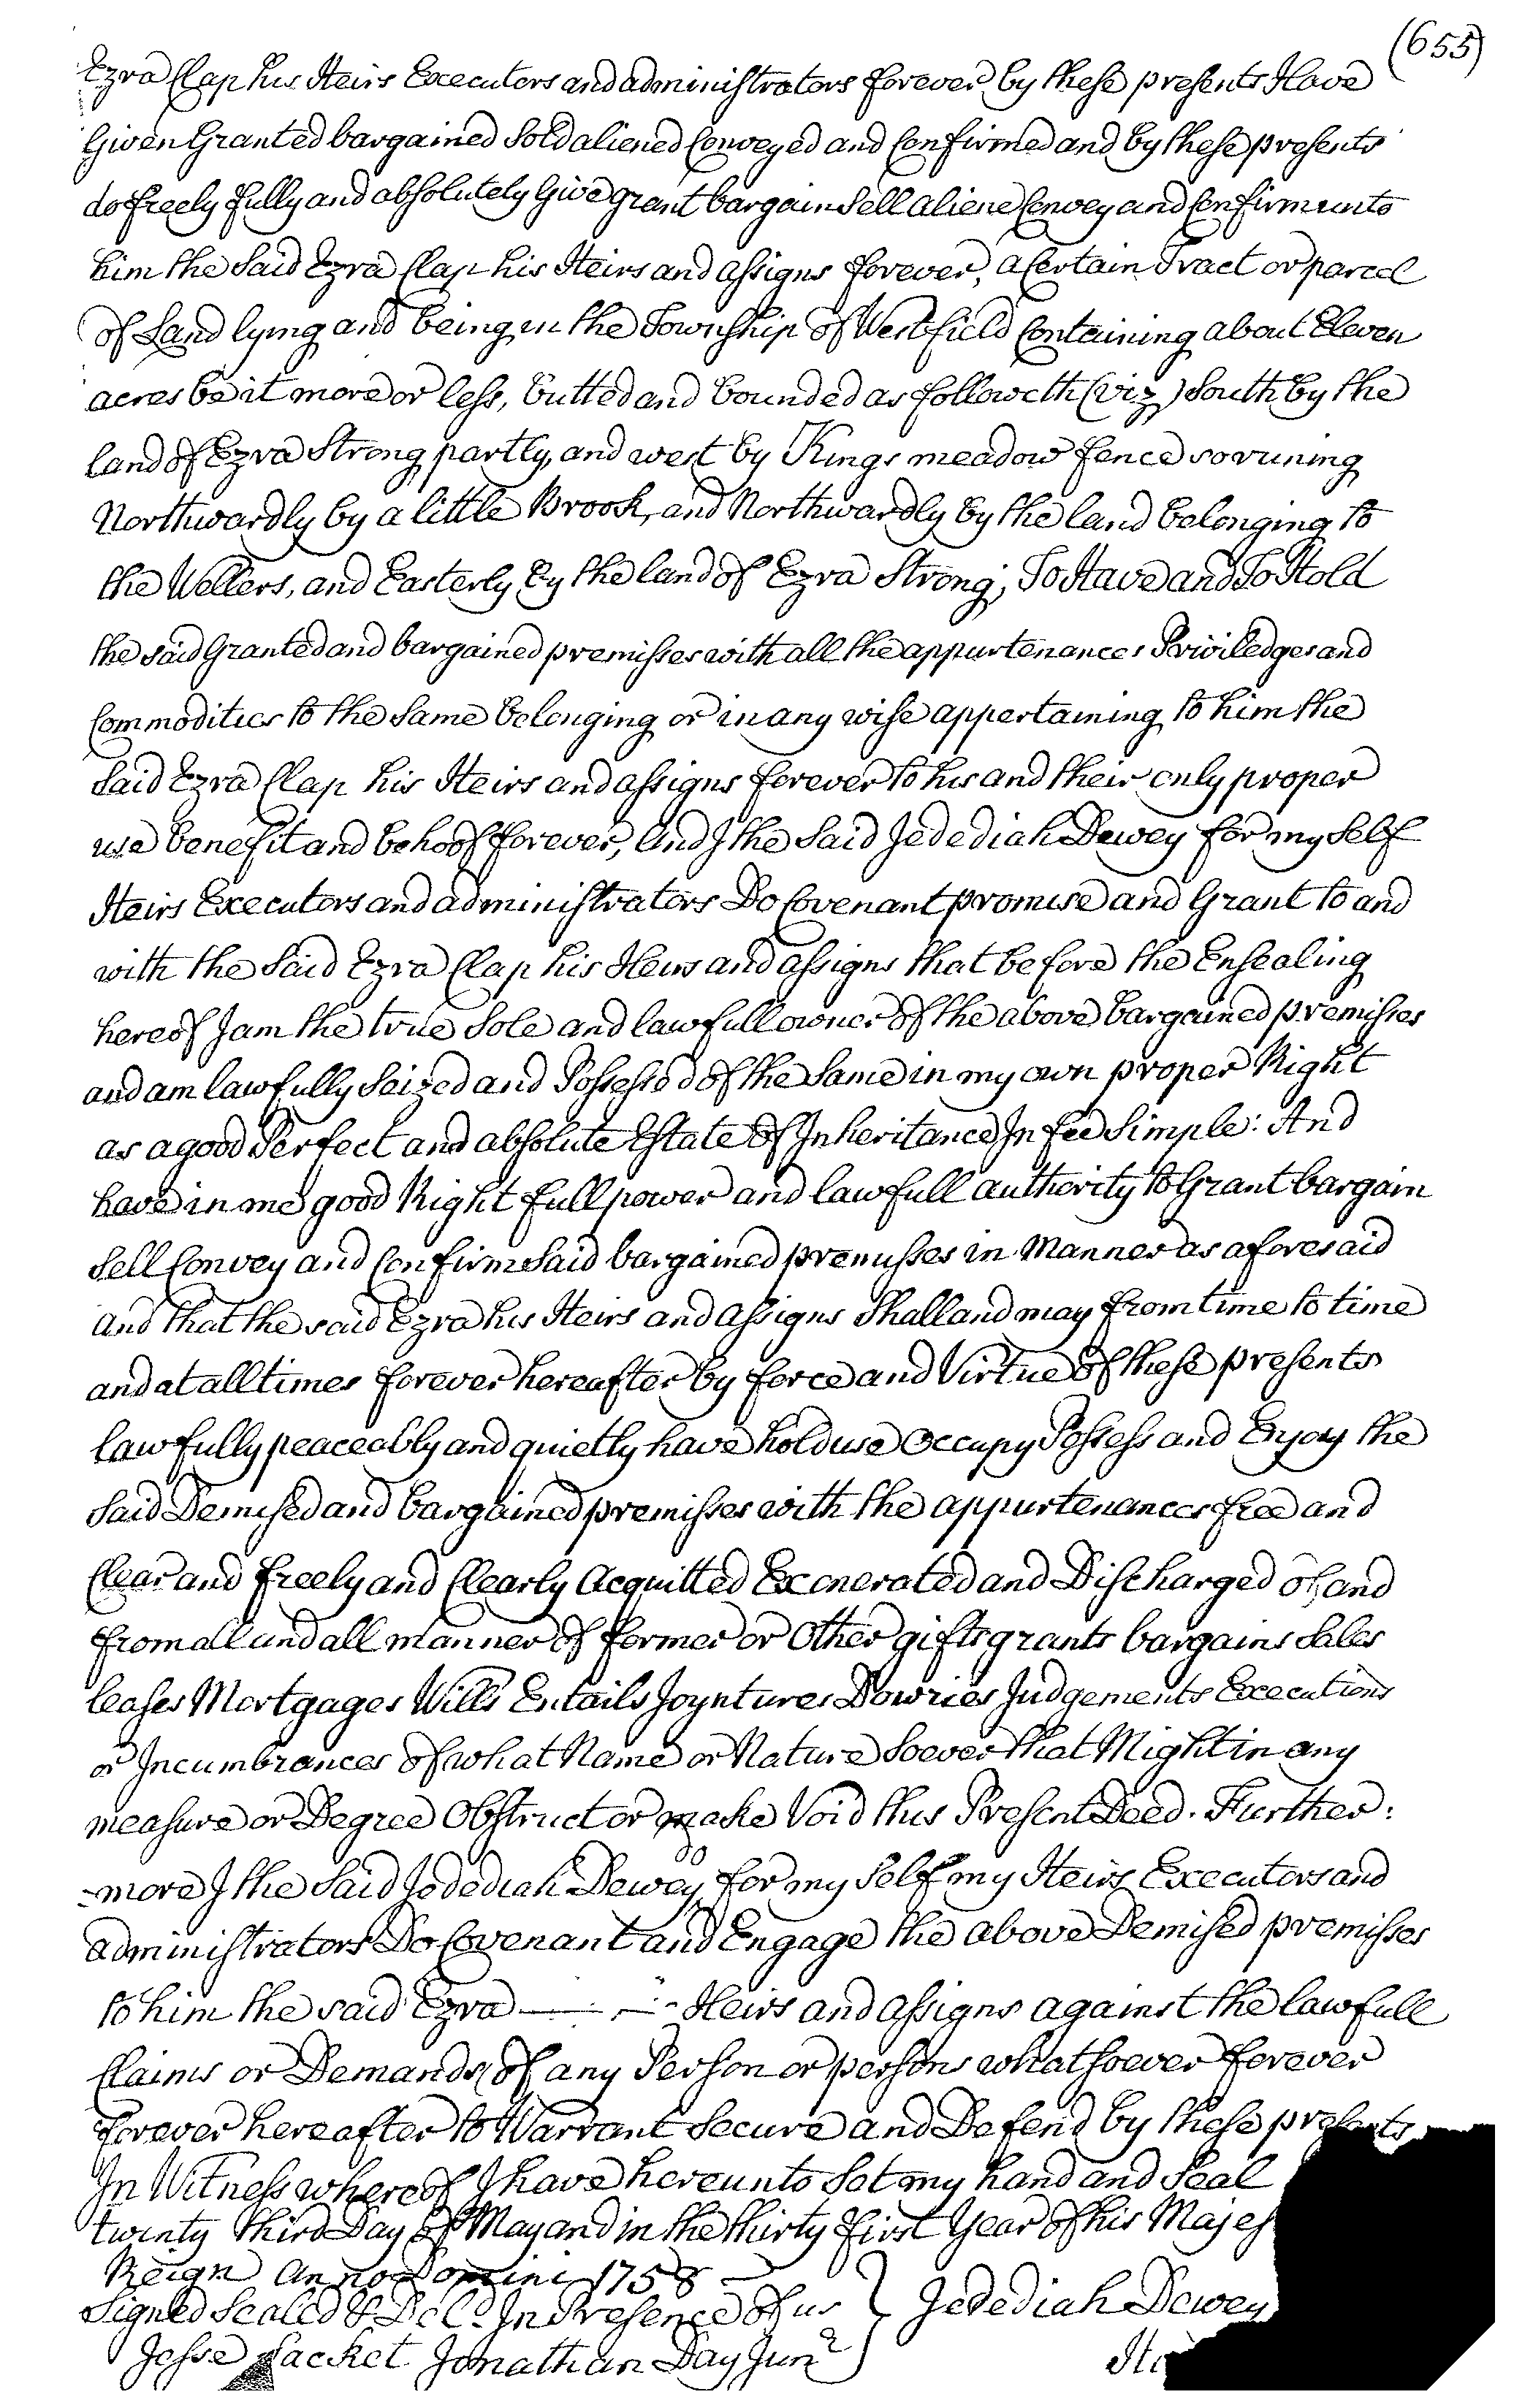 (655)
Ezra Clap his Heirs Executors and administrators forever by these presents Have
Given Granted bargained Sold aliened Conveyed and Confirmed and by these presents
do freely fully and absolutely Give grant bargain Sell aliene Convey and Confirm unto
him the Said Ezra Clap his Heirs and assigns forever, a Certain Tract or parcel
of Land lying and being in the Township of Westfield Containing about Eleven
acres be it more or less, butted and bounded as followeth (viz) South by the
land of Ezra Strong partly, and west by Kings meadow fence so runing
Northwardly by a little Brook, and Northwardly by the land belonging to
the Wellers, and Easterly by the land of Ezra Strong, To Have and To Hold
the said Granted and bargained premisses with all the appurtenances Priviledges and
Commodities to the Same belonging or in any wise appertaining to him the
Said Ezra Clap his Heirs and assigns forever to his and their only proper
use benefit and behoof forever, And I the Said Jedediah Dewey for my Self
Heirs Executors and administrators Do Covenant promise and Grant to and
with the Said Ezra Clap his Heirs and assigns that before the Ensealing
hereof I am the true Sole and lawfull owner of the above bargained premisses
and am lawfully Seized and Possessed of the Same in my own proper Right
as a good Perfect and absolute Estate of Inheritance In fee Simple: And
have in me good Right full power and lawfull authority to Grant bargain
Sell Convey and Confirm Said bargained premisses in Manner as aforesaid
And that the said Ezra his Heirs and assigns Shall and may from time to time
and at all times forever hereafter by force and Virtue of these presents
lawfully peaceably and quietly have hold use Occupy Possess and Enjoy the
Said Demised and bargained premisses with the appurtenances free and
Clear and freely and Clearly Acquitted Exonerated and Discharged of and
from all and all manner of former or Other gifts grants bargains Sales
leases Mortgages Wills Entails Joyntures Dowries Judgements Executions
or Incumbrances of what Name or Nature Soever that Might in any
measure or Degree Obstruct or make Void this Present Deed. Further:
-more I the Said Jedediah Dewey for my Self my Heirs Executors and
administrators Do Covenant and Engage the above Demised premisses
to him the said Ezra — — Heirs and assigns against the lawfull
Claims or Demands of any Person or persons whatsoever forever
forever hereafter to Warrant Secure and Defend by these presents
In Witness whereof I have hereunto Set my hand and Seal
twenty third Day of May and in the thirty first Year of his Majes
Reign Anno Domini 1758
Signed Sealed & Deld In Presence of us } Jedediah Dewey
Jesse Sacket Jonathan Day Junr